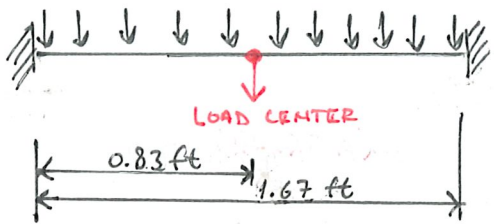 LOAD CENTER
0.83 ft
1.67 ft